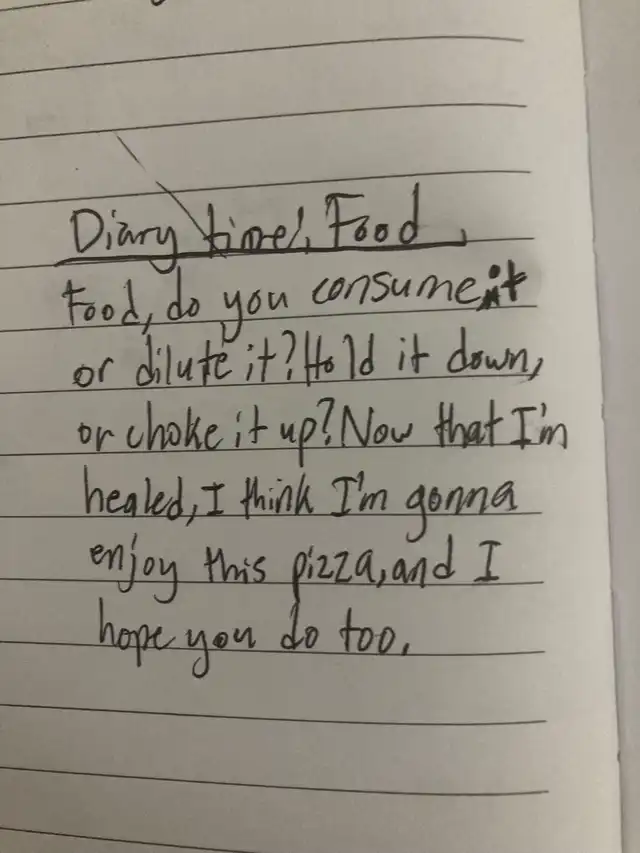 Diary time!, Food.
Food, do you consume it
or dilute it? Hold it down,
or choke it up? Now that I'm
healed, I think I'm gonna
enjoy this pizza, and I
hope you do too.